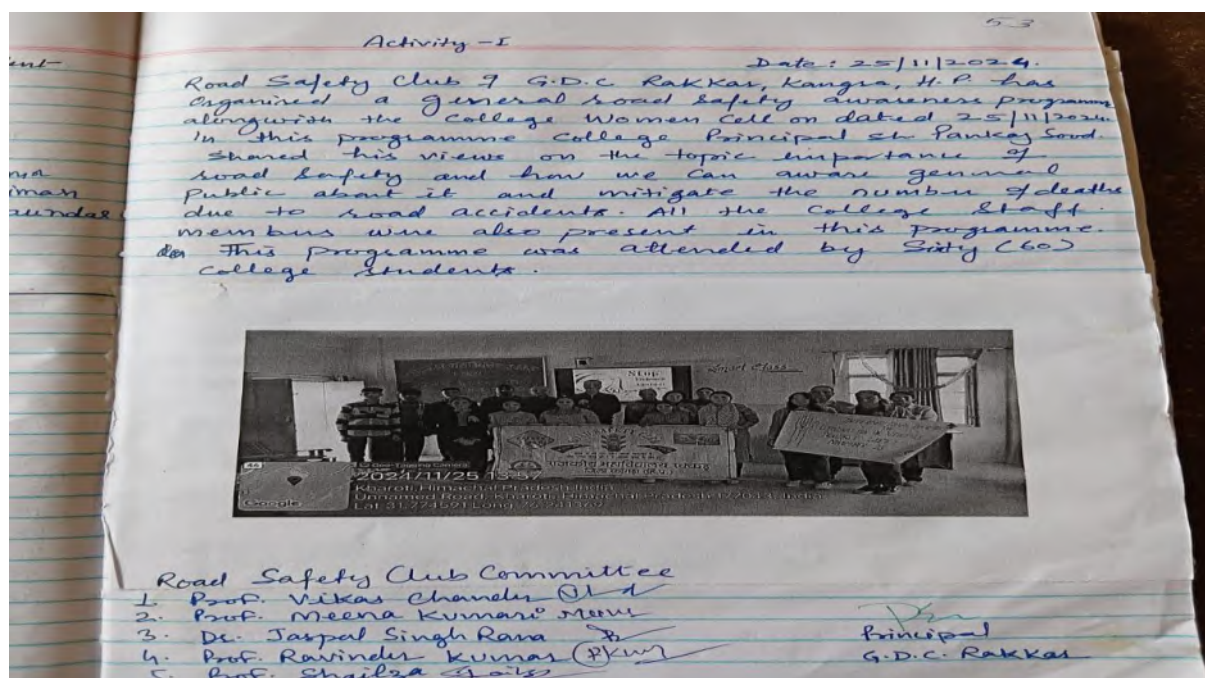 53
Activity - I
Date: 25/11/2024.
Road Safety Club of G.D.C Rakkar, Kangra, H.P. has
Organised a general road safety awareness programme
alongwith the College Women Cell on dated 25/11/2024
In this programme College Principal sh. Pankaj Sood
shared his views on the topic importance of
road safety and how we can aware general
Public about it and mitigate the number of deaths
due to road accidents. All the College Staff
members were also present in this programme.
This programme was attended by Sixty (60)
College students.
Stop
Smart Class
राजकीय महाविद्यालय रक्कड़
2024/11/25 13:57
Kharoti, Himachal Pradesh, India
Unnamed Road, Kharoti, Himachal Pradesh, India
Google
Road Safety Club Committee
1. Prof. Vikas Chander
2. Prof. Meena Kumari Meena
3. Dr. Jaspal Singh Rana
Principal
4. Prof. Ravinder Kumar
G.D.C. Rakkar
5. Prof. Shailza